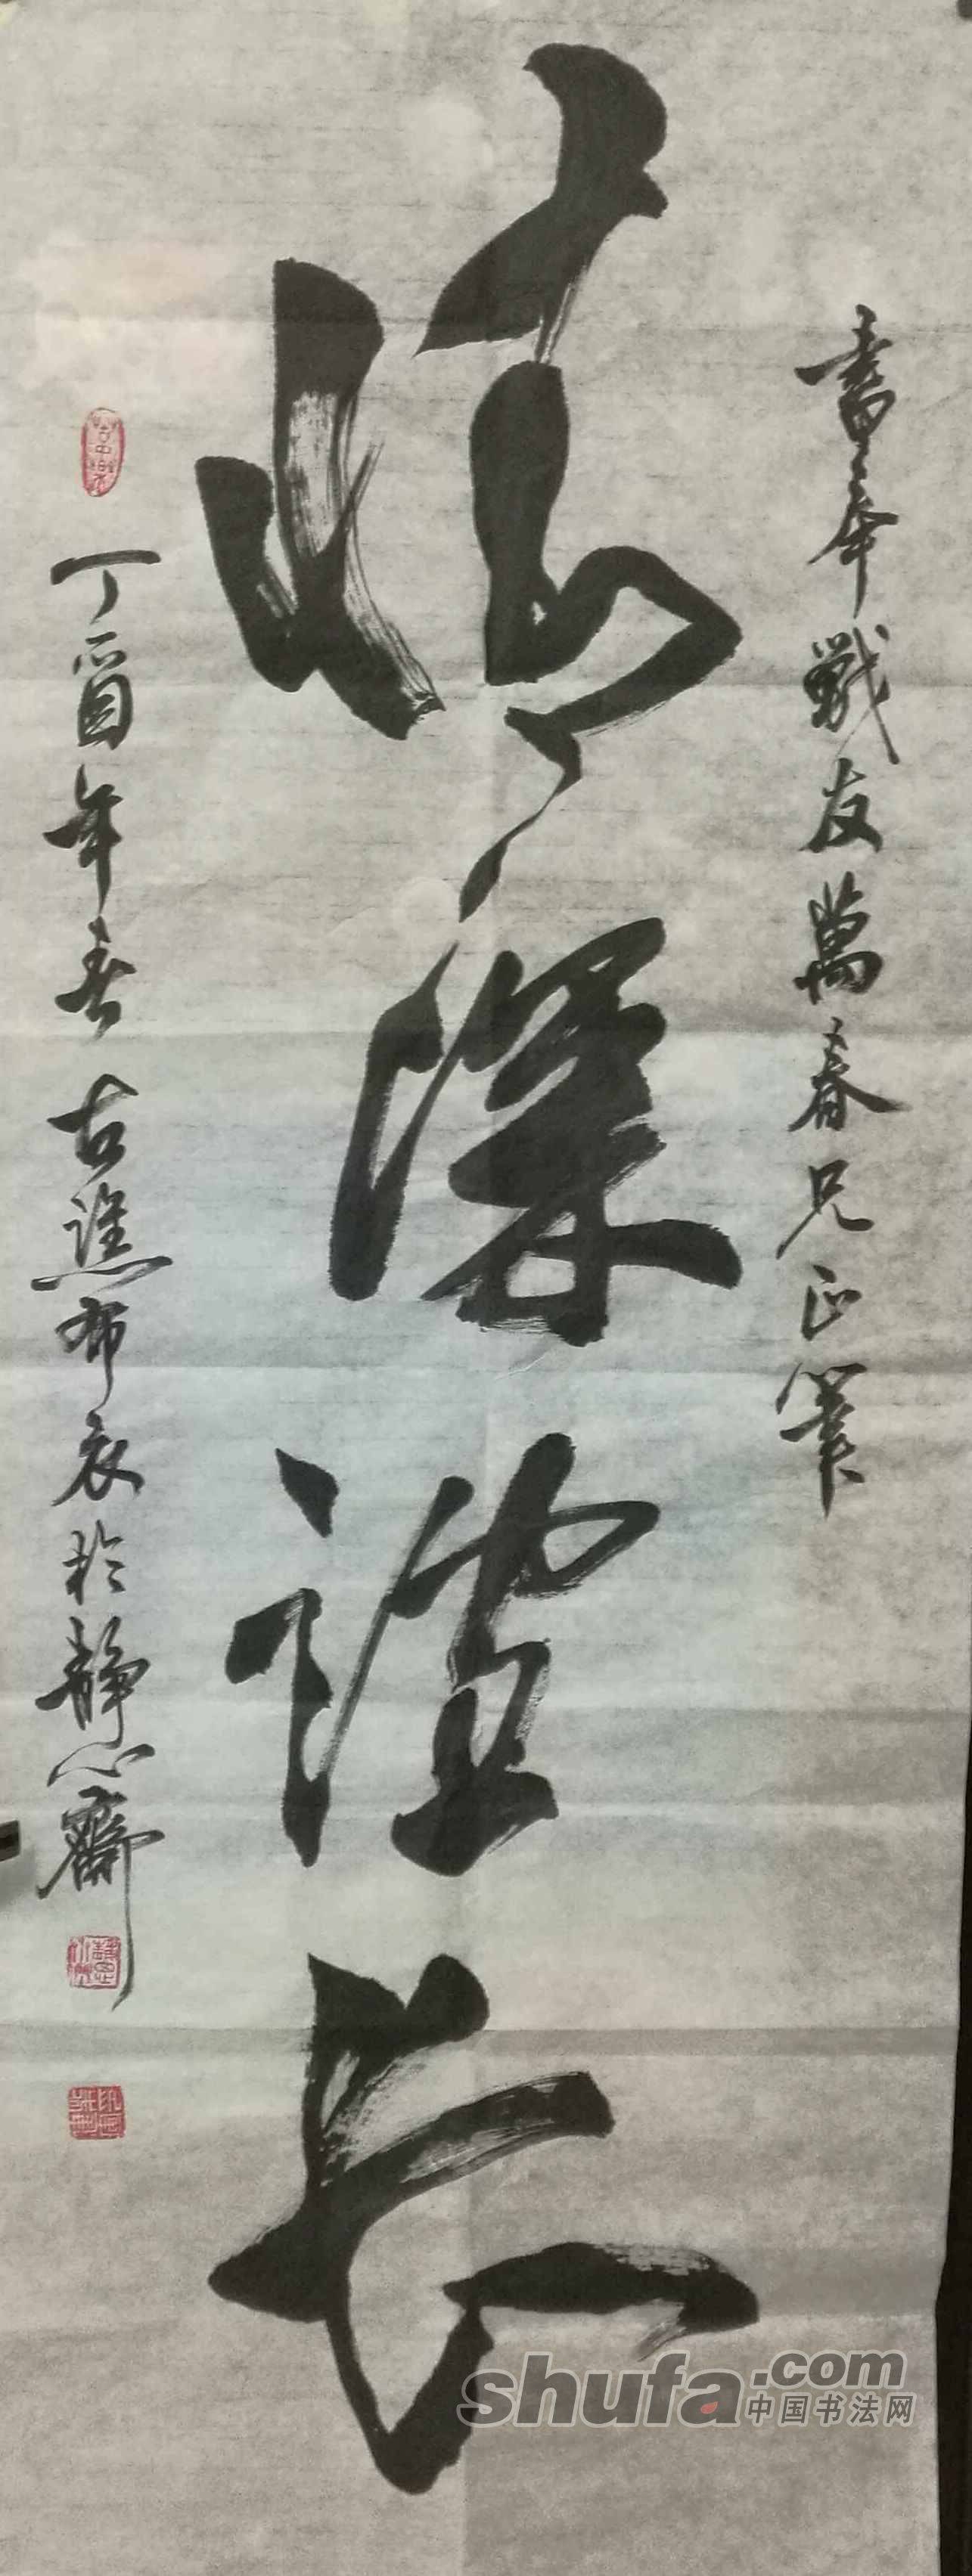 書奉戰友萬春兄正筆
情深谊长
丁酉年春古譙布衣於靜心齋
shufa.com
中国书法网